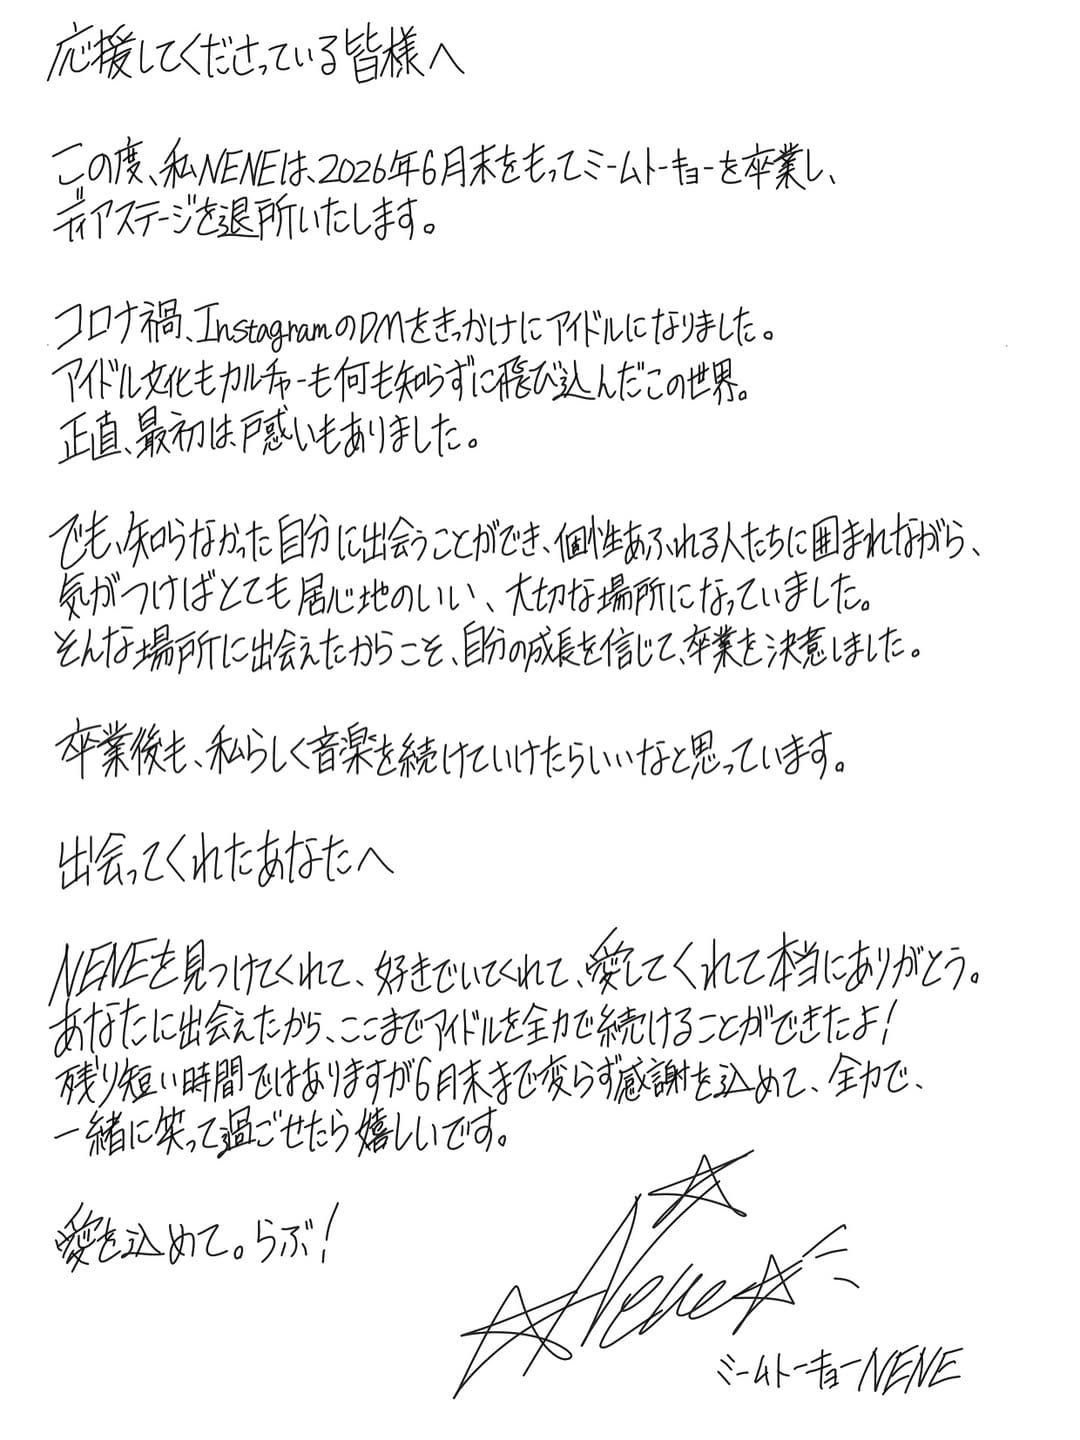 応援してくださっている皆様へ
この度、私NENEは、2026年6月末をもってミームトーキョーを卒業し、
ディアステージを退所いたします。
コロナ禍、InstagramのDMをきっかけにアイドルになりました。
アイドル文化もカルチャーも何も知らずに飛び込んだこの世界。
正直、最初は戸惑いもありました。
でも、知らなかった自分に出会うことができ、個性あふれる人たちに囲まれながら、
気がつけばとても居心地のいい、大切な場所になっていました。
そんな場所に出会えたからこそ、自分の成長を信じて、卒業を決意しました。
卒業後も、私らしく音楽を続けていけたらいいなと思っています。
出会ってくれたあなたへ
NENEを見つけてくれて、好きでいてくれて、愛してくれて本当にありがとう。
あなたに出会えたから、ここまでアイドルを全力で続けることができたよ!
残り短い時間ではありますが6月末まで変らず感謝を込めて、全力で、
一緒に笑って過ごせたら嬉しいです。
愛を込めて。らぶ!
Nene
ミームトーキョーNENE